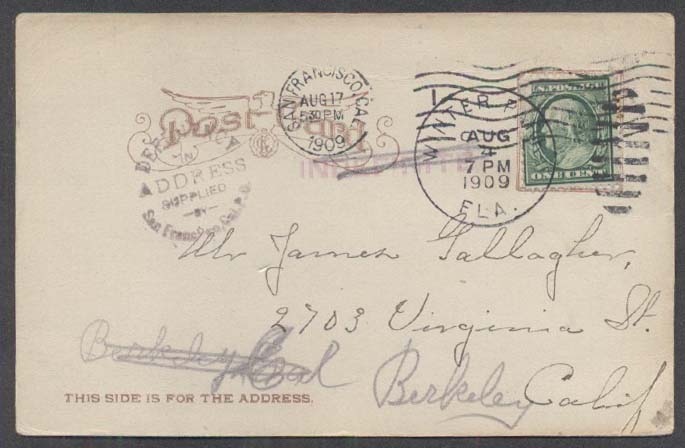 Post Card
SAN FRANCISCO, CAL.
AUG 17
5 30 PM
1909
WINTER
AUG
4
7 PM
1909
FLA.
ONE CENT
IN
ADDRESS
SUPPLIED
BY
San Francisco, Cal., P.O.
Mr James Gallagher,
2703 Virginia St.
Berkeley
Berkeley Calif
THIS SIDE IS FOR THE ADDRESS.